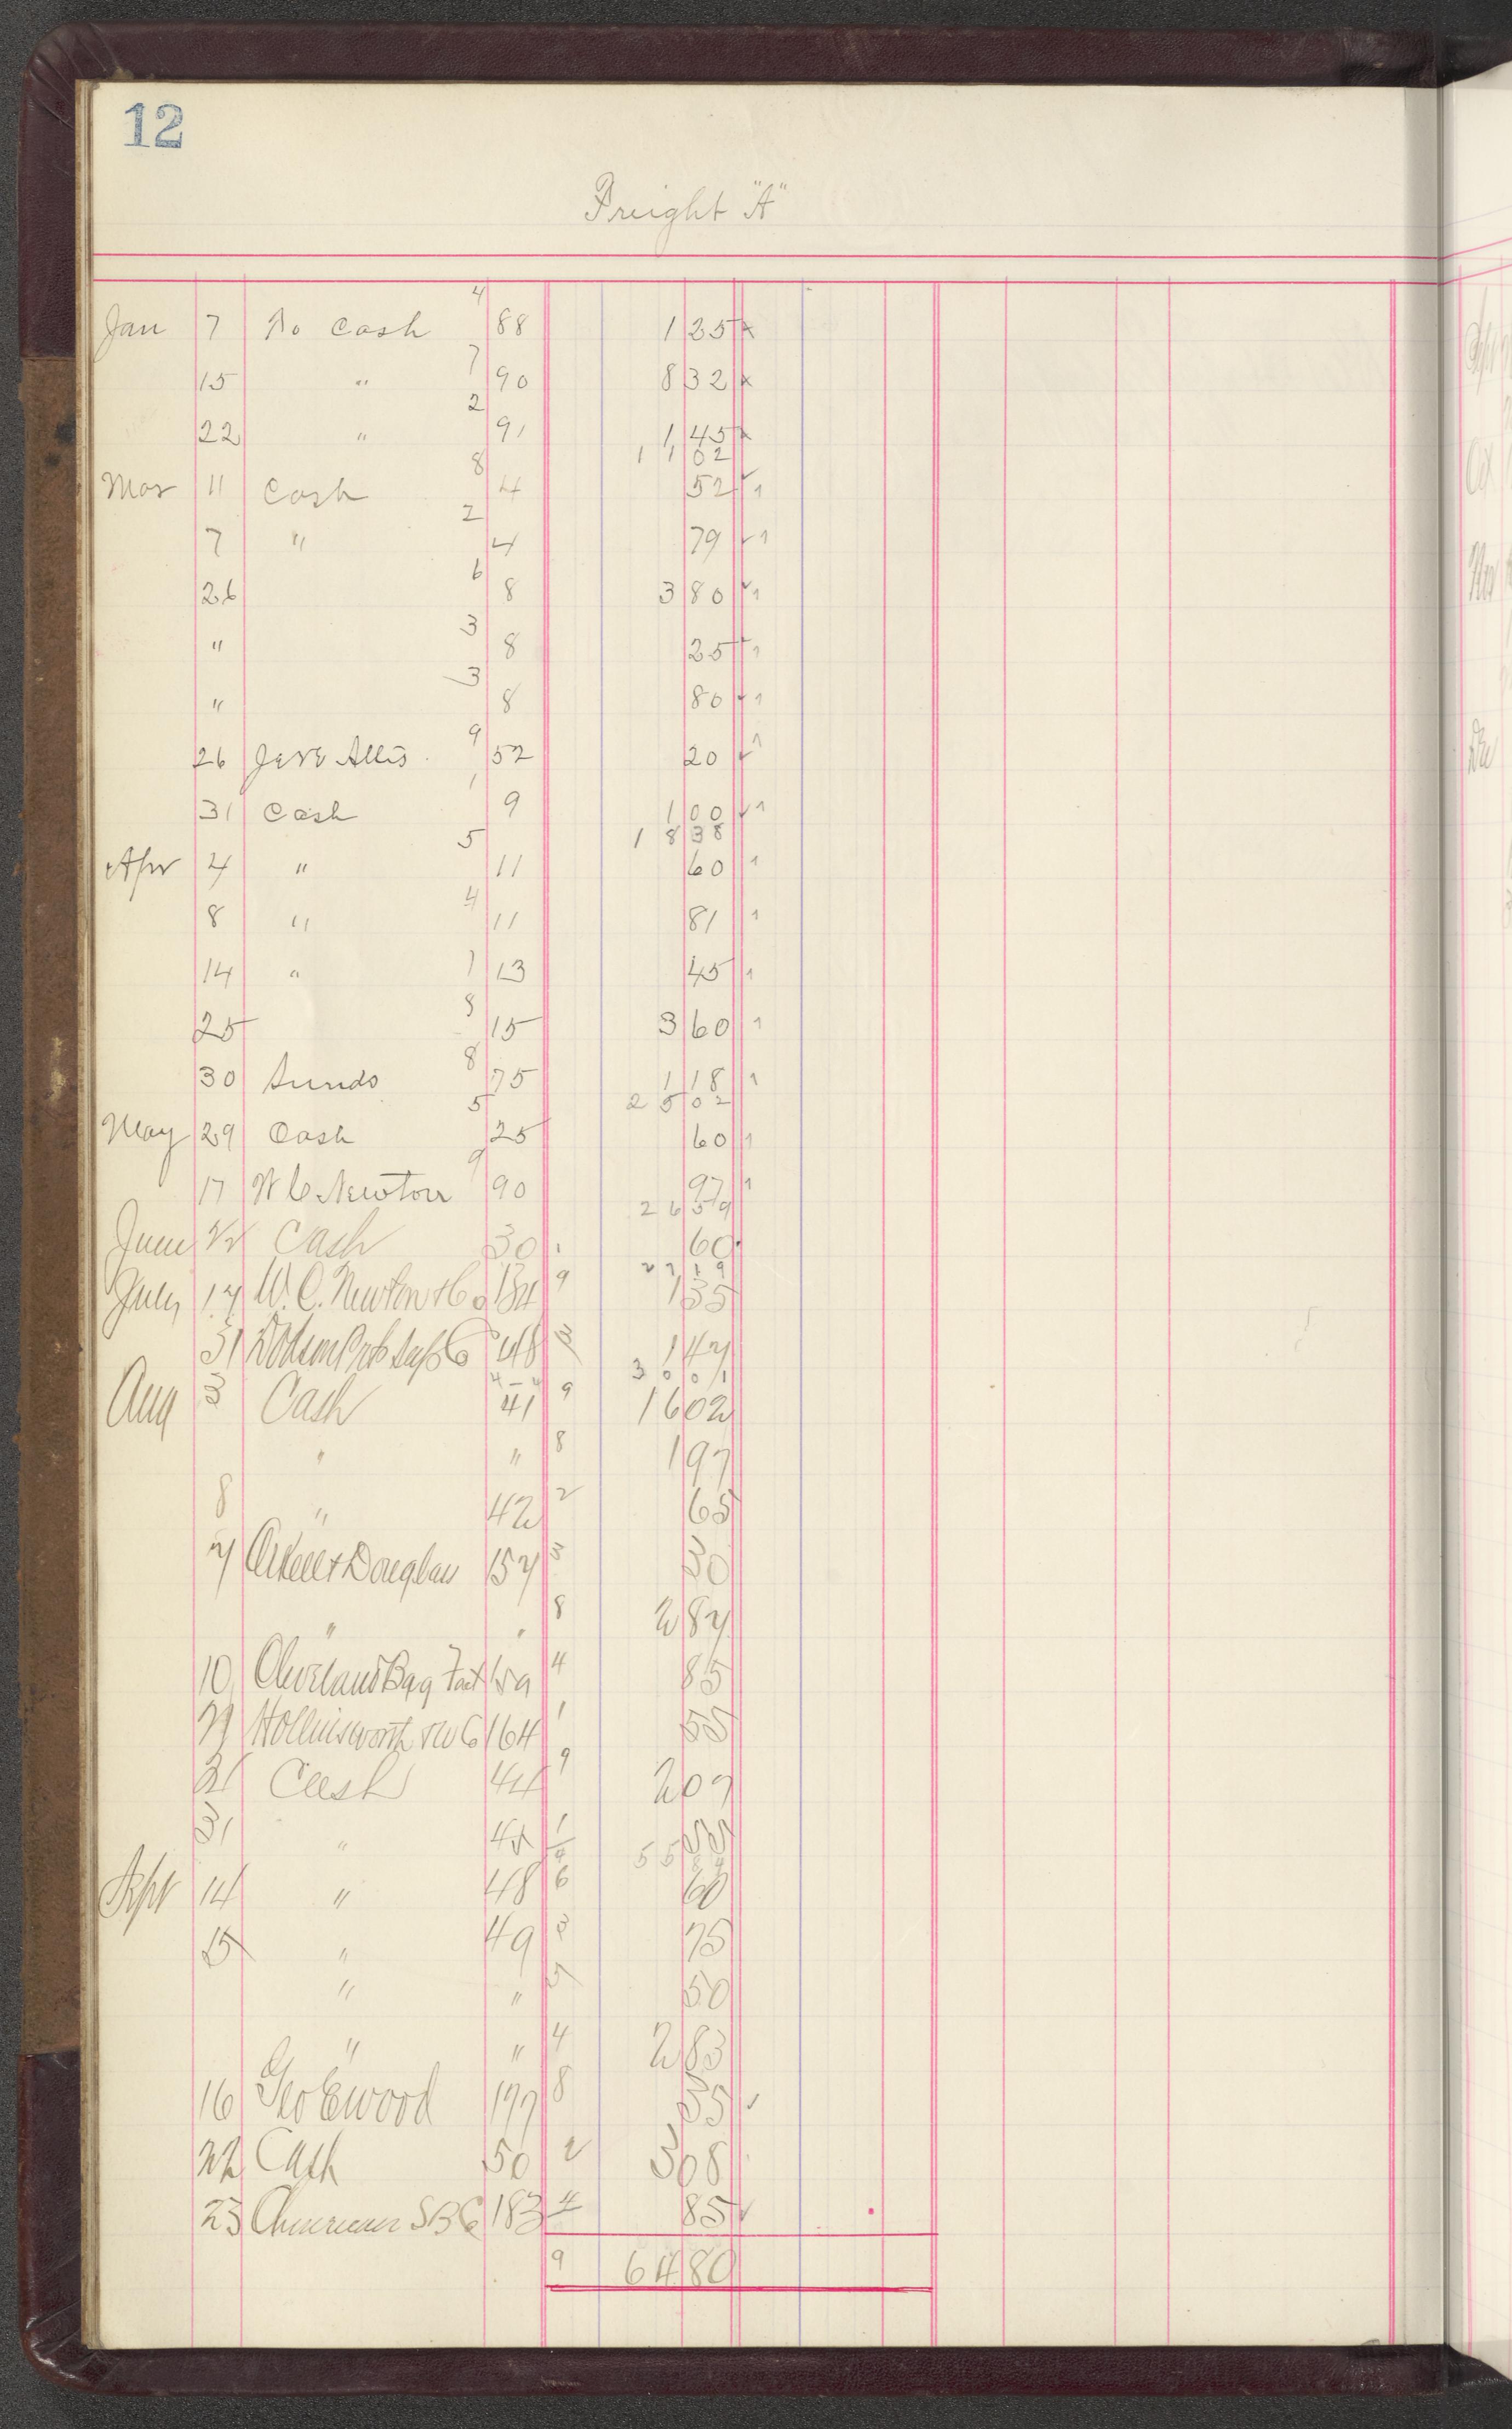 12
Freight "A"
Jan 7 To Cash 4 88 1 25 x
15 " 7 90 8 32 x
22 " 2 91 1 45 x
11 02
Mar 11 Cash 8 4 52 ✓ 1
7 " 2 4 79 ✓ 1
26 6 8 3 80 ✓ 1
" 3 8 25 ✓ 1
" 3 8 80 ✓ 1
26 Allis 9 52 20 ✓ 1
31 Cash 1 9 1 00 ✓ 1
18 38
Apr 4 " 5 11 60 1
8 " 4 11 81 1
14 " 1 13 45 1
25 8 15 3 60 1
30 Sunds 8 75 1 18 1
25 02
May 29 Cash 5 25 60 1
17 W C Newton 9 90 97 1
26 59
June 22 Cash 30 1 60
27 19
July 17 W. C. Newton & Co 134 9 1 35
31 Co 148 3 1 47
30 01
Aug 3 Cash 41 9 16 02
" " 8 1 97
8 " 42 2 65
7 Arkell & Douglass 157 3 30
" " 8 2 87
10 Cleveland Bag Fact 159 4 85
21 Hollinsworth & W Co 164 1 55
21 Cash 44 9 2 07
31 " 45 1 55
55
Sept 14 " 48 6 60
15 " 49 3 75
" " 5 50
" " 4 2 83
16 Geo E Wood 177 8 35 ✓
22 Cash 50 2 3 08
23 American S B Co 183 4 85 ✓
9 64 80